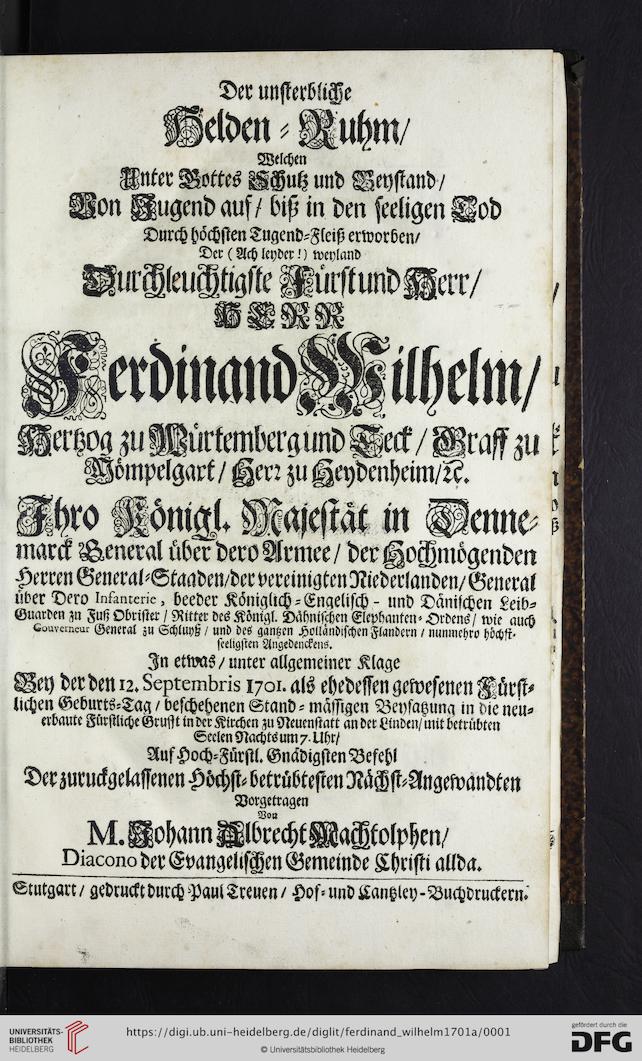 Der unsterbliche
Helden-Ruhm/
Welchen
Unter Gottes Schutz und Beystand/
Von Jugend auf/ biß in den seeligen Tod
Durch höchsten Tugend-Fleiß erworben/
Der (Ach leyder!) weyland
Durchleuchtigste Fürst und Herr/
HERR
Ferdinand Wilhelm/
Hertzog zu Würtemberg und Teck/ Graff zu
Mömpelgart/ Herr zu Heydenheim/ꝛc.
Ihro Königl. Majestät in Denne-
marck General über dero Armee/ der Hochmögenden
Herren General-Staaden/der vereinigten Niederlanden/ General
über Dero Infanterie, beeder Königlich-Engelisch- und Dänischen Leib-
Guarden zu Fuß Obrister/ Ritter des Königl. Dähnischen Elephanten-Ordens/ wie auch
Gouverneur General zu Schluyß/ und des gantzen Holländischen Flandern/ nunmehro höchst-
seeligsten Angedenckens.
In etwas/ unter allgemeiner Klage
Bey der den 12. Septembris 1701. als ehedessen gewesenen Fürst-
lichen Geburts-Tag/ beschehenen Stand-mässigen Beysatzung in die neu-
erbaute Fürstliche Grufft in der Kirchen zu Neuenstatt an der Linden/ mit betrübten
Seelen Nachts um 7. Uhr/
Auf Hoch-Fürstl. Gnädigsten Befehl
Der zuruckgelassenen Höchst-betrübtesten Nächst-Angewandten
Vorgetragen
Von
M. Johann Albrecht Machtolphen/
Diacono der Evangelischen Gemeinde Christi allda.
Stutgart/ gedruckt durch Paul Treuen/ Hof- und Cantzley-Buchdruckern.
UNIVERSITÄTS-
BIBLIOTHEK
HEIDELBERG
https://digi.ub.uni-heidelberg.de/diglit/ferdinand_wilhelm1701a/0001
© Universitätsbibliothek Heidelberg
gefördert durch die
DFG